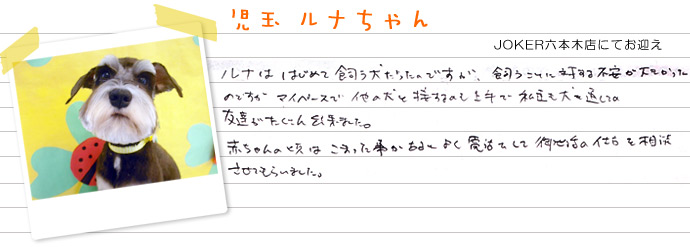 児玉 ルナちゃん
JOKER六本木店にてお迎え
ルナは はじめて飼う犬だったのですが、飼うことに対する不安が大きかった
のですが マイペースで 他の犬と接するのも上手で 私達も犬を通しての
友達がたくさん出来ました。
赤ちゃんの頃は こまった事があると よく電話して 御世話の仕方を相談
させてもらいました。